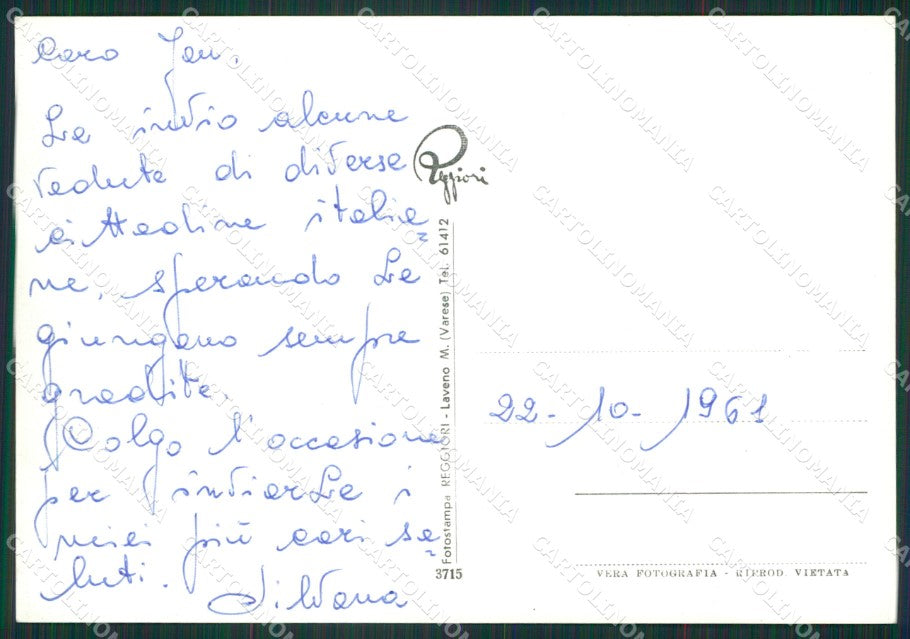 Caro Jan.
Le invio alcune
vedute di diverse
cittadine italia=
ne, sperando Le
giungano sempre
gradite.
Colgo l'occasione
per inviarLe i
miei più cari sa=
luti.
Silvana
Reggiori
Fotostampa REGGIORI - Laveno M. (Varese) Tel. 61412
3715
22-10-1961
VERA FOTOGRAFIA - RIPROD. VIETATA
CARTOLINOMANIA